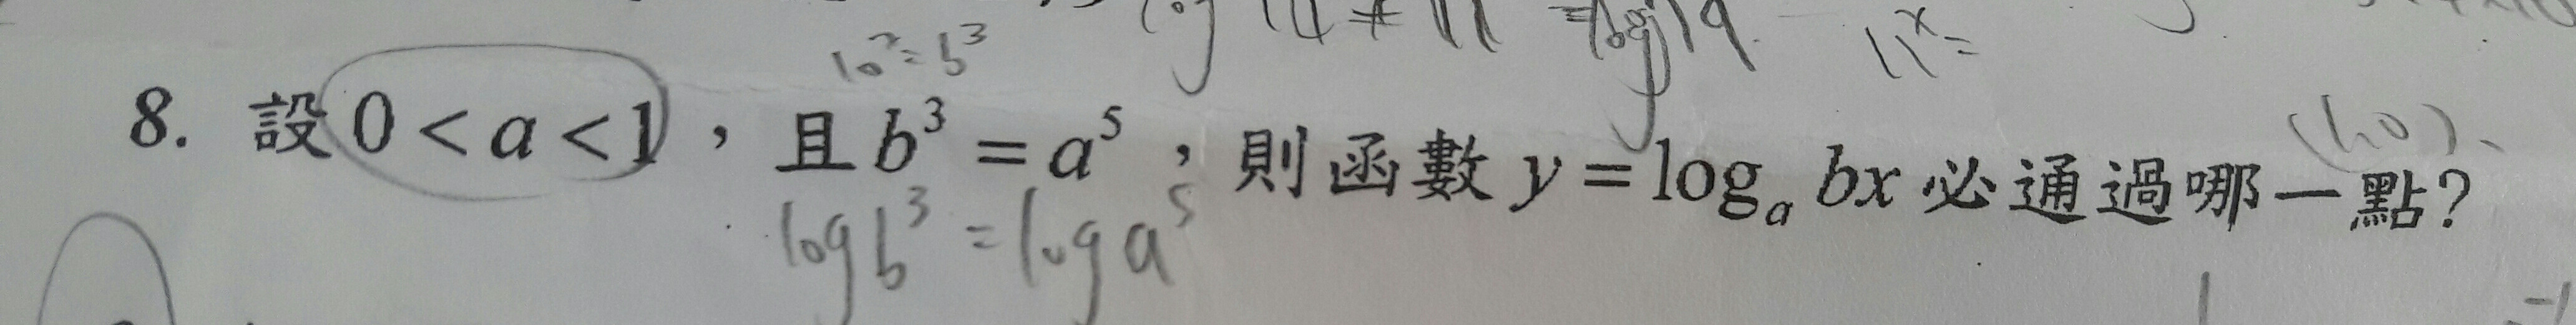 10^x=b^3
11^x=
8. 設0<a<1，且b^3=a^5，則函數y=log_a bx必通過哪一點?
(1,0)、
log b^3=log a^5